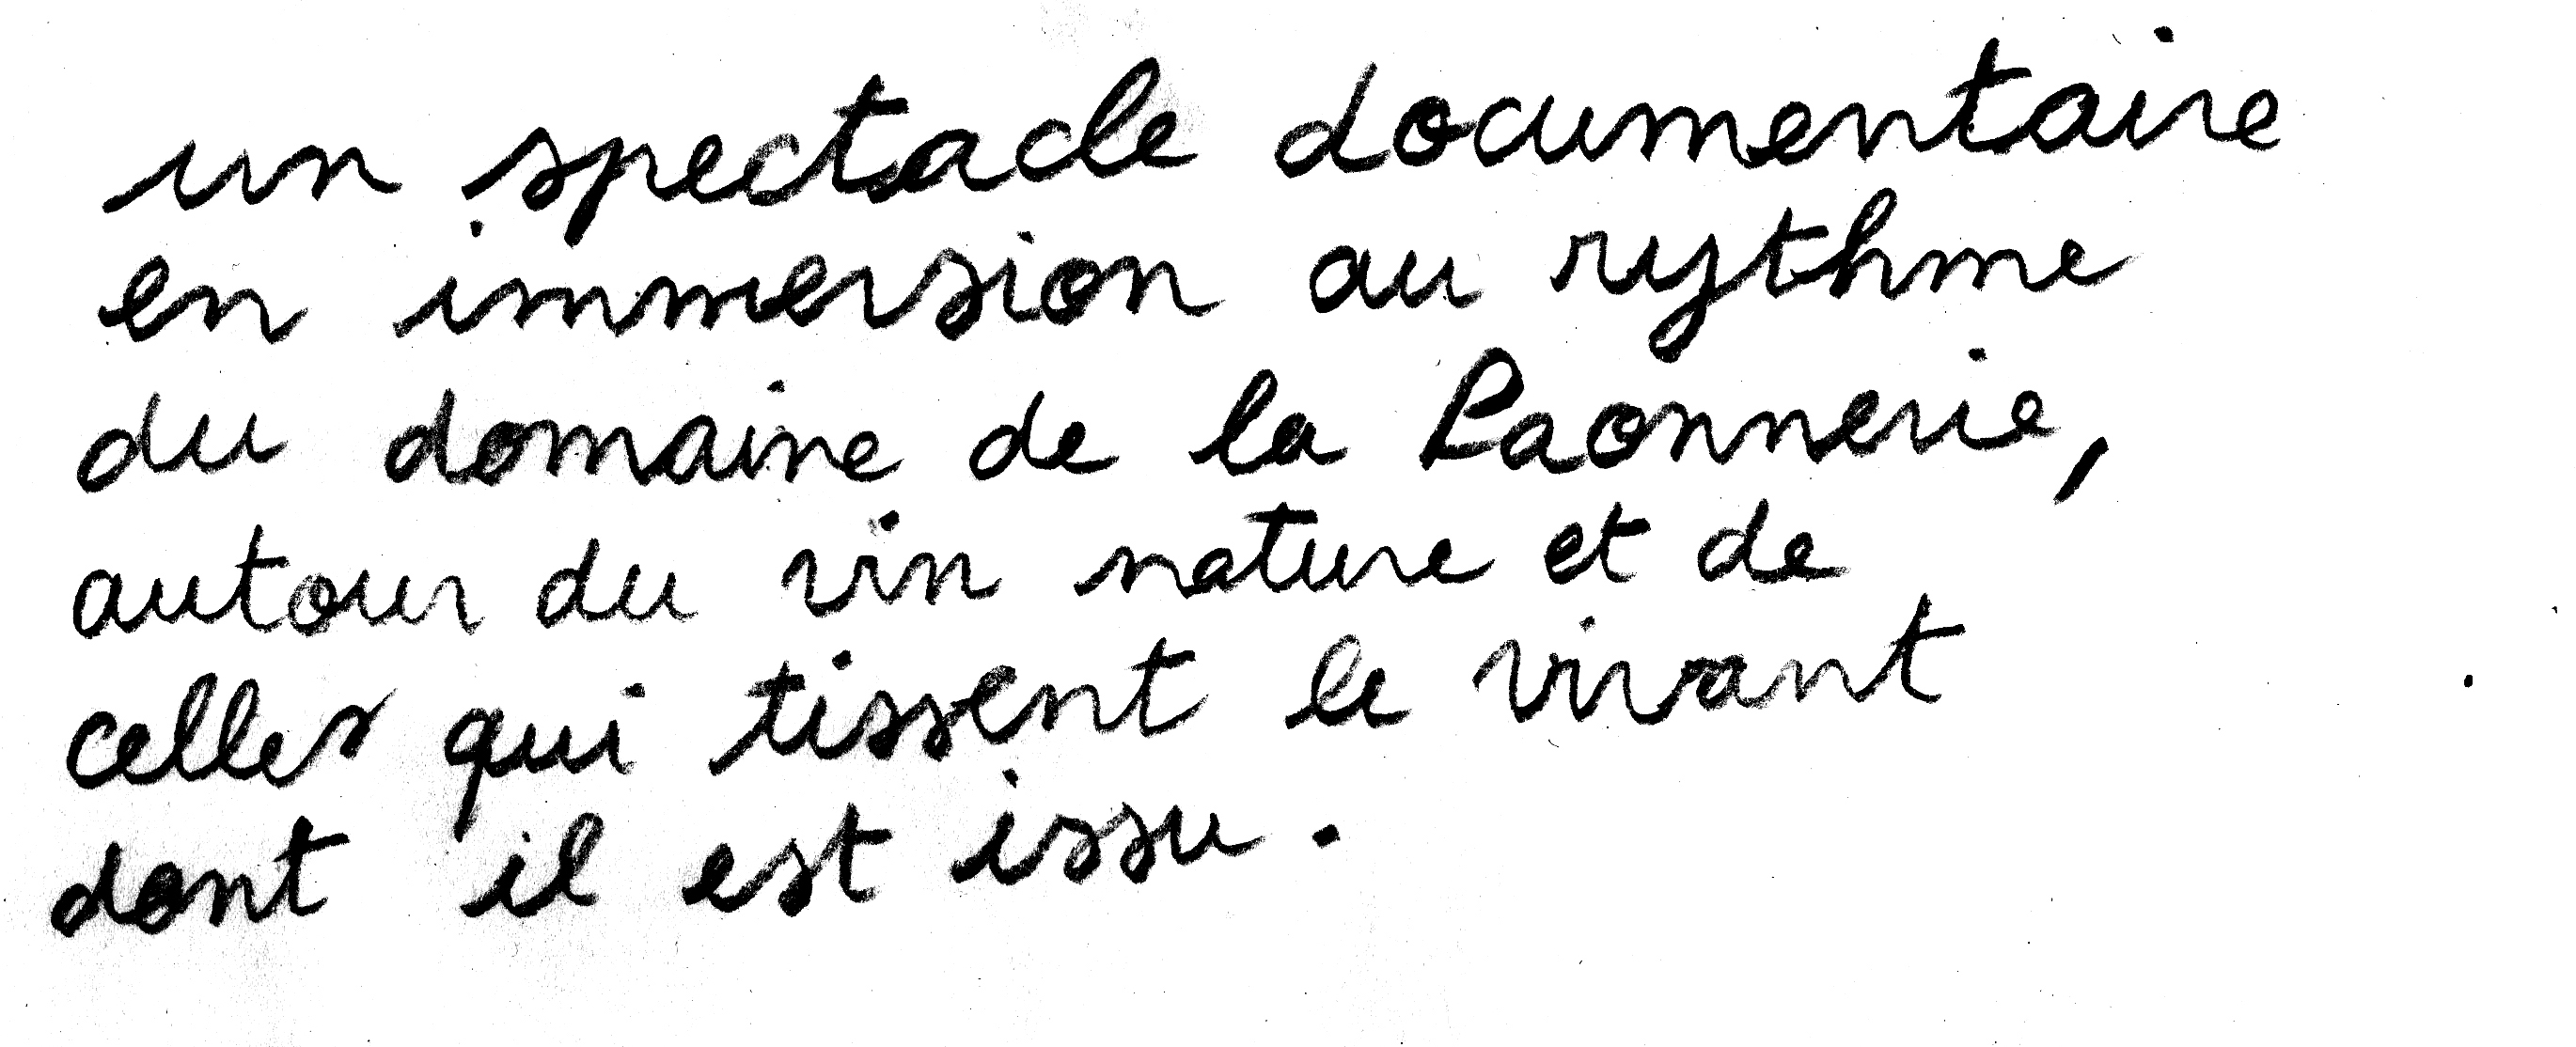 un spectacle documentaire
en immersion au rythme
du domaine de la Paonnerie,
autour du vin nature et de
celles qui tissent le vivant
dont il est issu.